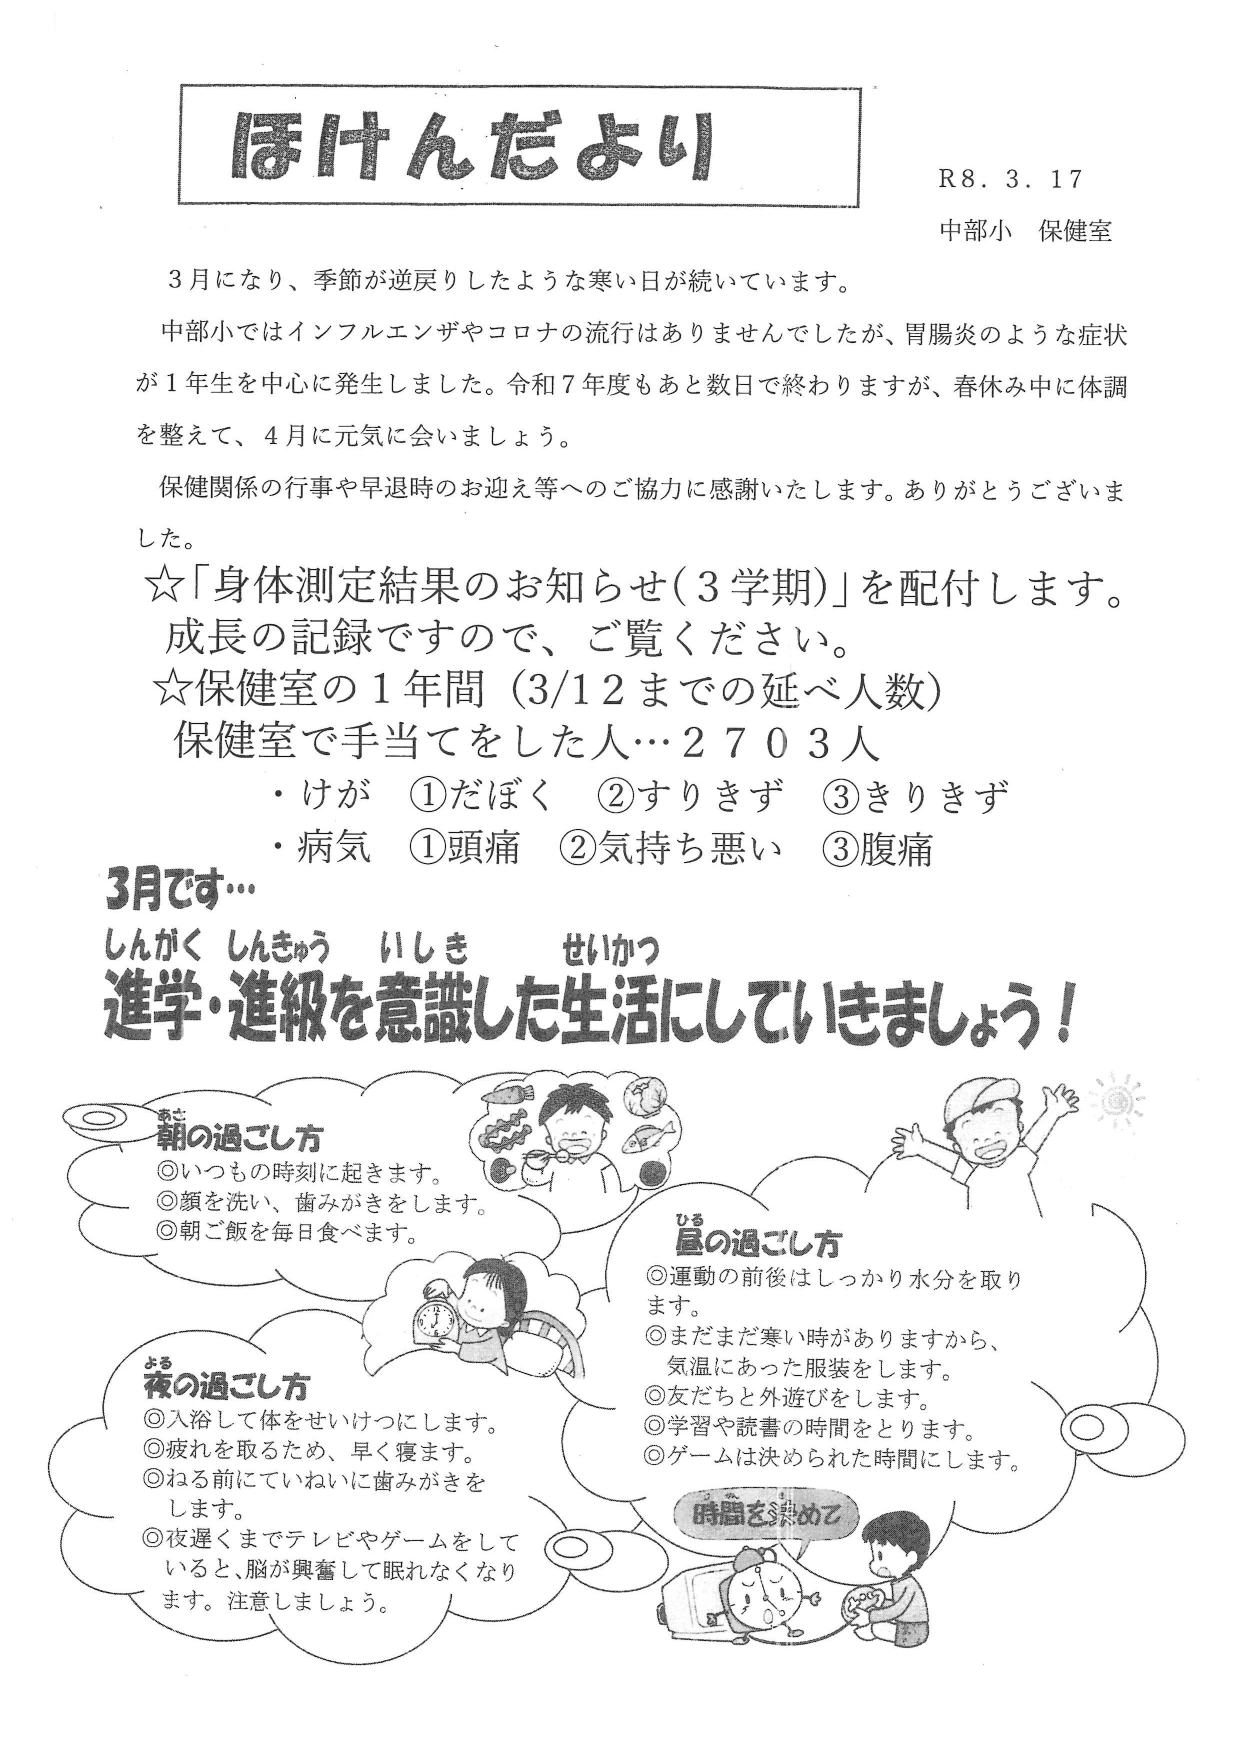 ほけんだより
R8．3．17
中部小　保健室
３月になり、季節が逆戻りしたような寒い日が続いています。
中部小ではインフルエンザやコロナの流行はありませんでしたが、胃腸炎のような症状
が１年生を中心に発生しました。令和７年度もあと数日で終わりますが、春休み中に体調
を整えて、４月に元気に会いましょう。
保健関係の行事や早退時のお迎え等へのご協力に感謝いたします。ありがとうございま
した。
☆「身体測定結果のお知らせ(３学期)」を配付します。
成長の記録ですので、ご覧ください。
☆保健室の１年間（3/12までの延べ人数）
保健室で手当てをした人…２７０３人
・けが　①だぼく　②すりきず　③きりきず
・病気　①頭痛　②気持ち悪い　③腹痛
3月です…
しんがく しんきゅう　いしき　せいかつ
進学・進級を意識した生活にしていきましょう！
あさ
朝の過ごし方
◎いつもの時刻に起きます。
◎顔を洗い、歯みがきをします。
◎朝ご飯を毎日食べます。
ひる
昼の過ごし方
◎運動の前後はしっかり水分を取り
ます。
◎まだまだ寒い時がありますから、
気温にあった服装をします。
◎友だちと外遊びをします。
◎学習や読書の時間をとります。
◎ゲームは決められた時間にします。
よる
夜の過ごし方
◎入浴して体をせいけつにします。
◎疲れを取るため、早く寝ます。
◎ねる前にていねいに歯みがきを
します。
◎夜遅くまでテレビやゲームをして
いると、脳が興奮して眠れなくなり
ます。注意しましょう。
時間を決めて